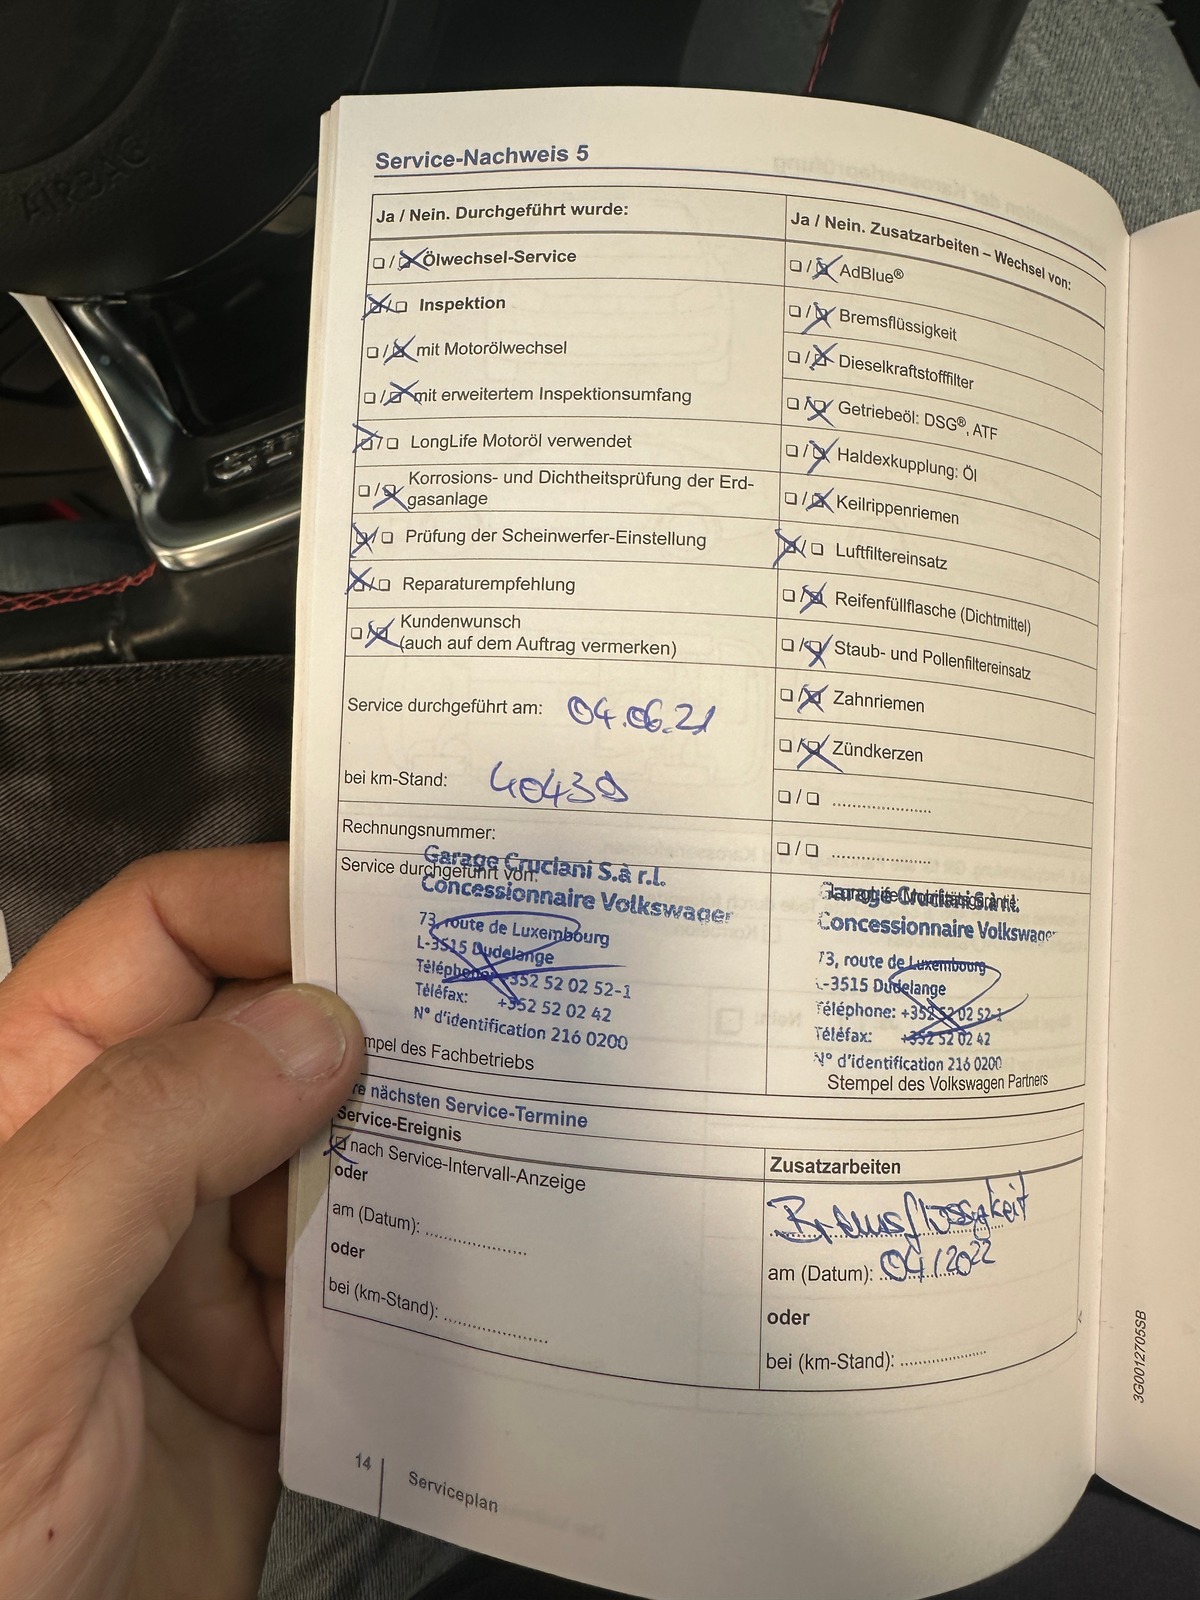 AIRBAG
GTI
Service-Nachweis 5
Ja / Nein. Durchgeführt wurde:
❑ / ❑ Ölwechsel-Service
❑ / ❑ Inspektion
❑ / ❑ mit Motorölwechsel
❑ / ❑ mit erweitertem Inspektionsumfang
❑ / ❑ LongLife Motoröl verwendet
❑ / ❑ Korrosions- und Dichtheitsprüfung der Erd-
gasanlage
❑ / ❑ Prüfung der Scheinwerfer-Einstellung
❑ / ❑ Reparaturempfehlung
❑ / ❑ Kundenwunsch
(auch auf dem Auftrag vermerken)
Service durchgeführt am: 04.06.21
bei km-Stand: 40439
Rechnungsnummer:
Service durchgeführt von:
Garage Cruciani S.à r.l.
Concessionnaire Volkswagen
73, route de Luxembourg
L-3515 Dudelange
Téléphone: +352 52 02 52-1
Téléfax: +352 52 02 42
N° d'identification 216 0200
mpel des Fachbetriebs
Ja / Nein. Zusatzarbeiten – Wechsel von:
❑ / ❑ AdBlue®
❑ / ❑ Bremsflüssigkeit
❑ / ❑ Dieselkraftstofffilter
❑ / ❑ Getriebeöl: DSG®, ATF
❑ / ❑ Haldexkupplung: Öl
❑ / ❑ Keilrippenriemen
❑ / ❑ Luftfiltereinsatz
❑ / ❑ Reifenfüllflasche (Dichtmittel)
❑ / ❑ Staub- und Pollenfiltereinsatz
❑ / ❑ Zahnriemen
❑ / ❑ Zündkerzen
❑ / ❑ ....................
❑ / ❑ ....................
Garage Cruciani S.à r.l.
Concessionnaire Volkswagen
73, route de Luxembourg
L-3515 Dudelange
Téléphone: +352 52 02 52-1
Téléfax: +352 52 02 42
N° d'identification 216 0200
Stempel des Volkswagen Partners
re nächsten Service-Termine
Service-Ereignis
❑ nach Service-Intervall-Anzeige
oder
am (Datum): ....................
oder
bei (km-Stand): ....................
Zusatzarbeiten
Bremsflüssigkeit
am (Datum): 04/2022
oder
bei (km-Stand): ....................
3G0012705SB
14 Serviceplan